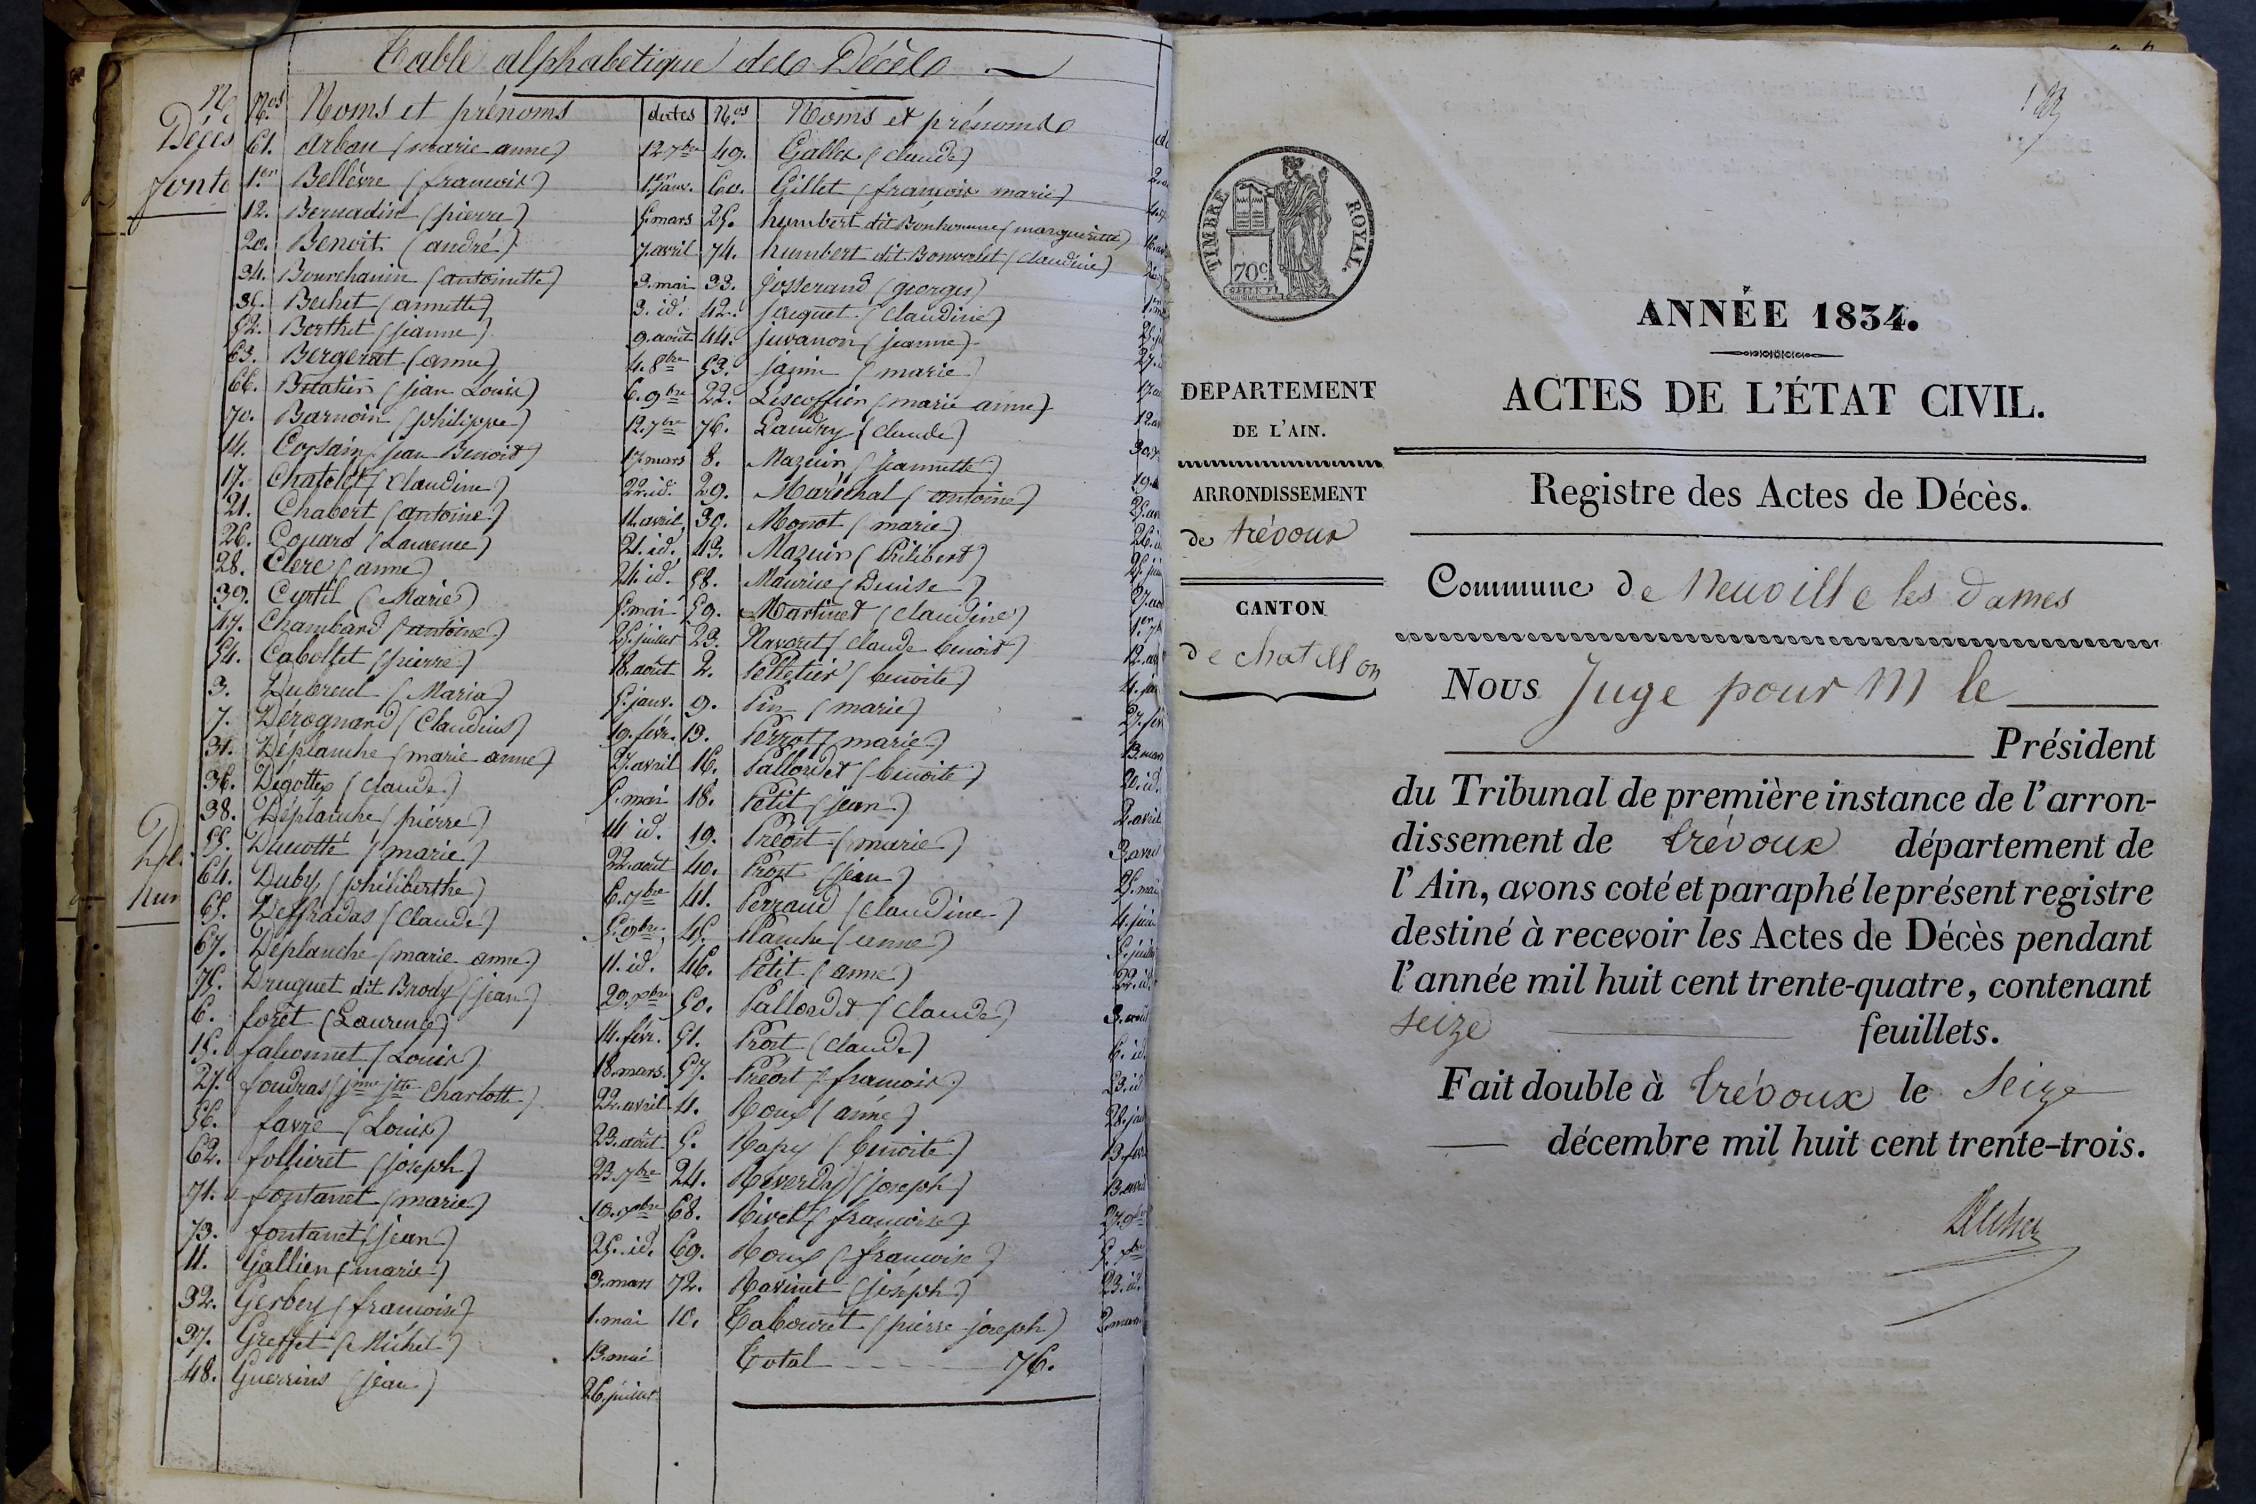 Table alphabetique des Décès
Nos Noms et prénoms dates Nos Noms et prénoms
Décès
61. Arban (marie anne) 12 7bre 49. Gallet (Claude)
1.er Bellèvre (francois) 1.er janv. 60. Gillet (francois marie)
12. Bernadin (pierre) 5. mars 25. humbert dit Bonhomme (marguerite)
20. Benoit (andré) 7. avril 74. humbert dit Bonvalet (Claudine)
34. Bourchanin (antoinette) 3. mai 33. Josserand (georges)
35. Bechet (annette) 3. id. 42. jacquet (Claudine)
52. Berthet (jeanne) 9. août 44. juvanon (jeanne)
63. Bergerat (anne) 4. 8bre 53. janin (marie)
66. (jean Louis) 6. 9bre 22. Liscoffier (marie anne)
70. Barnoin (philippe) 12. 7bre 76. Landry (Claude)
14. Corsain jean Benoit) 17. mars 8. Mazuin (Jeannette)
17. Chatelet (Claudine) 22. id. 29. Maréchal (antoine)
21. Chabert (antoine) 11. avril 39. Monot (marie)
26. Couard (Laurence) 21. id. 43. Mazuir (Philibert)
28. Clerc (anne) 24. id. 58. Maurice (Denise)
30. Curtil (Marie) 5. mai 59. Martinet (Claudine)
47. Chambard (antoine) 25. juillet 23. Navoret (Claude benoit)
54. Cabottet (pierre) 18. août 2. Pelletier (benoite)
3. Dubreul (Maria) 5. janv. 9. Pin (marie)
7. Dérognard (Claudius) 19. févr. 13. Perrot (marie)
31. Déplanche (marie anne) 27. avril 16. Pallordet (benoite)
36. Dégottex (Claude) 5. mai 18. Petit (jean)
38. Déplanche (pierre) 14 id. 19. Préost (marie)
55. Ducotté (marie) 22. août 40. Prost (jean)
64. Duby (philiberthe) 6. 9bre 41. Perraud (Claudine)
65. Deffradas (Claude) 5. 9bre 45. Planche (anne)
67. Deplanche (marie anne) 11. id. 46. Petit (anne)
75. Druguet dit Brody (jean) 29. 50. Pallordet (Claude)
6. forêt (Laurence) 14. févr. 51. Prost (Claude)
15. falconnet (Louis) 18. mars. 57. Préost (francois)
27. foudras (jme jtte Charlotte) 22. avril 4. Roux (aimé)
56. favre (Louis) 23. août 5. Rapy (benoite)
62. follieret (joseph) 23. 7bre 24. Reverdy (joseph)
71. fontanet (marie) 19. 68. Rivet (francoise)
73. fontanet (jean) 25. id. 69. Roux (francoise)
11. Gallien (marie) 3. mars 72. Ravinet (joseph)
32. Gerbey (francoise) 1. mai 10. Tabouret (pierre joseph)
37. Greffet (Michel) 13. mai Total 76.
48. Guerrins (jean) 26. juillet
TIMBRE ROYAL.
70c
ANNÉE 1834.
ACTES DE L'ÉTAT CIVIL.
Registre des Actes de Décès.
DEPARTEMENT
DE L'AIN.
ARRONDISSEMENT
de trévoux
CANTON
de chatillon
Commune de Neuville les dames
Nous Juge pour M le
Président
du Tribunal de première instance de l'arron-
dissement de trévoux département de
l'Ain, avons coté et paraphé le présent registre
destiné à recevoir les Actes de Décès pendant
l'année mil huit cent trente-quatre, contenant
seize feuillets.
Fait double à trévoux le seize
décembre mil huit cent trente-trois.